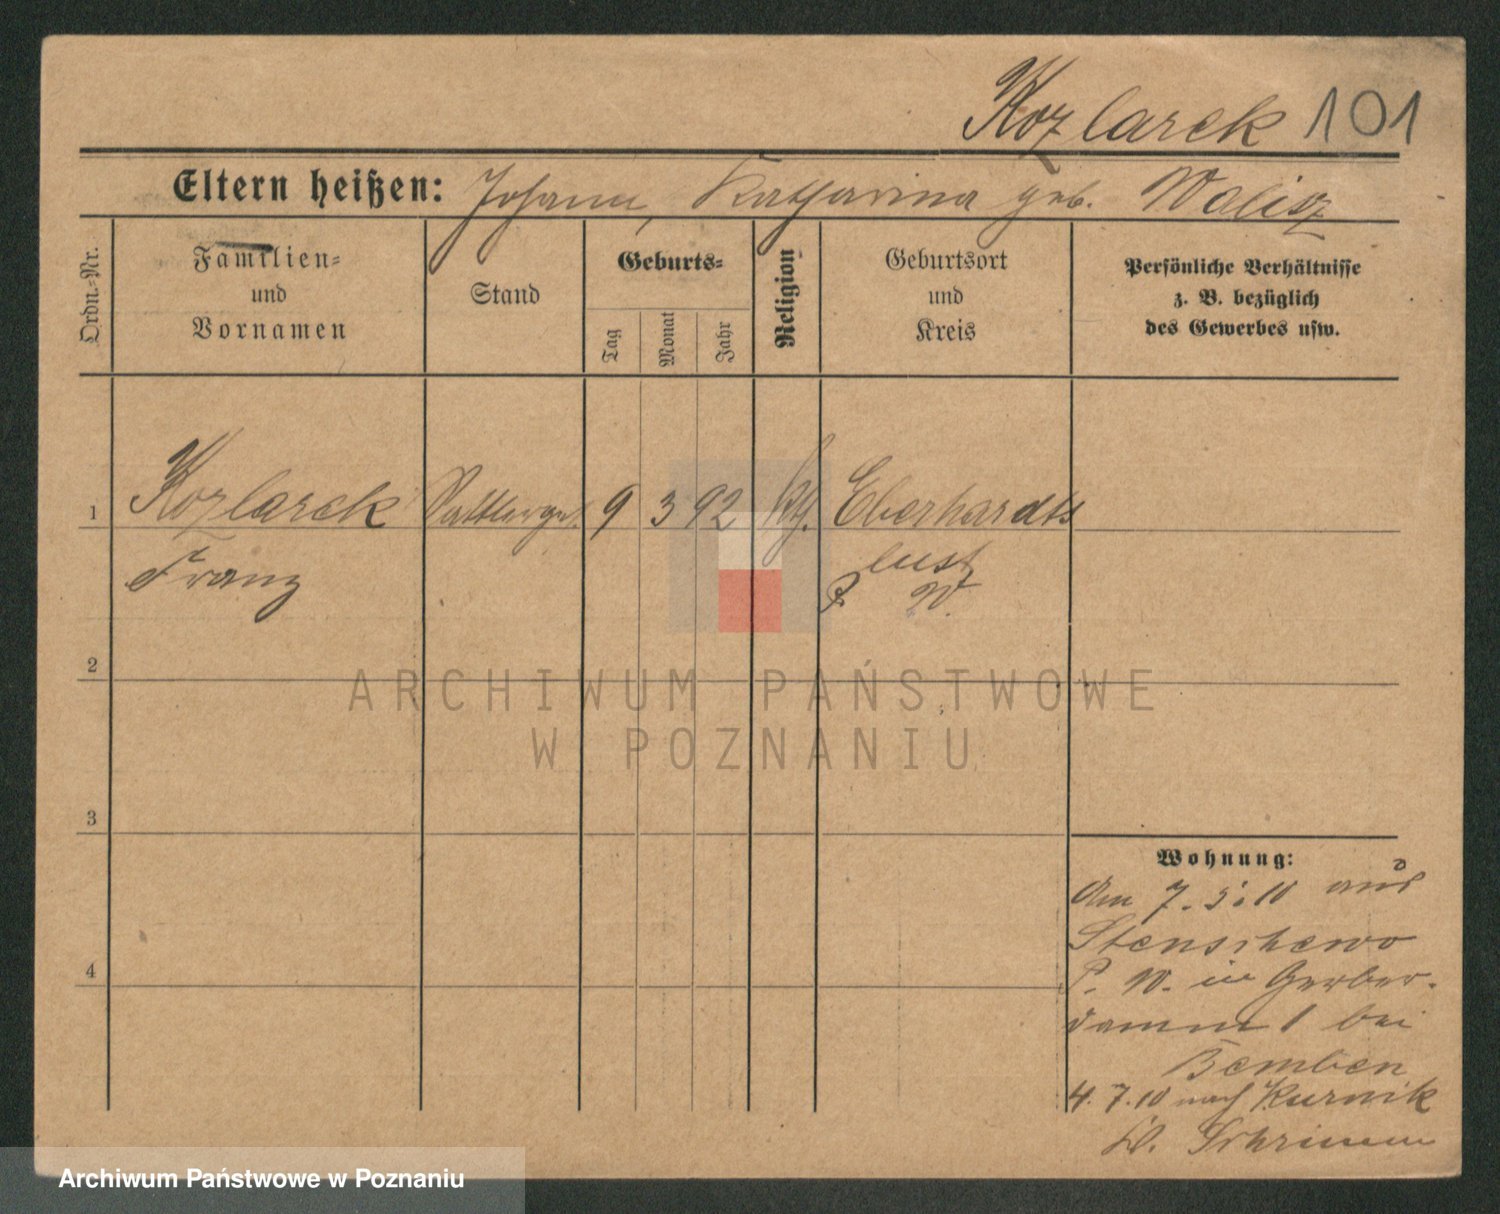 Kozlarek 101
Eltern heißen: Johann, Katharina geb. Walisz
Ordn.-Nr.
Familien-
und
Vornamen
Stand
Geburts-
Tag
Monat
Jahr
Religion
Geburtsort
und
Kreis
Persönliche Verhältnisse
z. B. bezüglich
des Gewerbes usw.
1 Kozlarek Sattlerges. 9 3 92 kth. Eberhardts
lust
Franz P. W.
2
3
4
Wohnung:
Am 7.5.10 aus
Stenschewo
P. W. in Gerber-
damm 1 bei
Bemben
4.7.10 nach Kurnik
Kr. Schrimm
ARCHIWUM PAŃSTWOWE
W POZNANIU
Archiwum Państwowe w Poznaniu